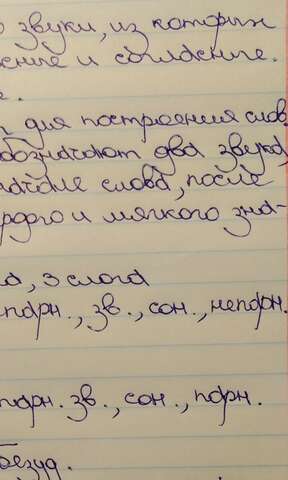 звуки, из которых
и согласные.
для построения слов.
обозначают два звука,
слова, после
и мягкого зна-
, 3 слога
парн., зв., сон., непарн.
парн. зв., сон., парн.
безуд.